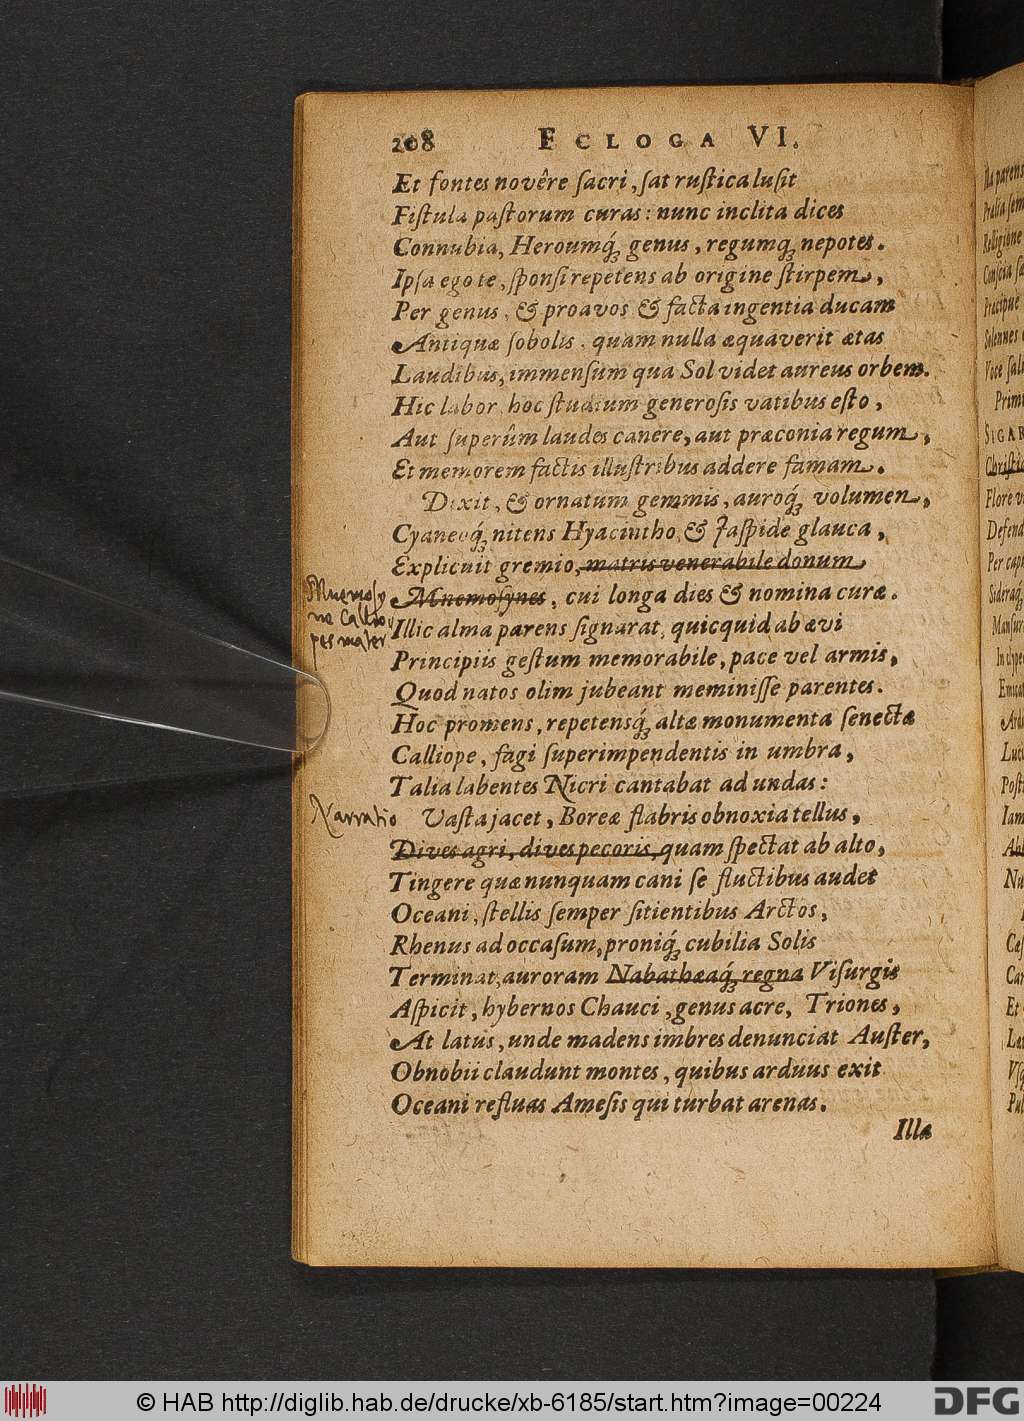 208 ECLOGA VI.
Et fontes novêre ſacri, ſat ruſtica luſit
Fiſtula paſtorum curas: nunc inclita dices
Connubia, Heroumq́ꝫ genus, regumq́ꝫ nepotes.
Ipſa ego te, ſponſi repetens ab origine ſtirpem,
Per genus, & proavos & facta ingentia ducam
Antiquæ ſobolis. quam nulla æquaverit ætas
Laudibus, immenſum qua Sol videt aureus orbem.
Hic labor, hoc ſtudium generoſis vatibus eſto,
Aut ſuperûm laudes canere, aut præconia regum,
Et memorem factis illuſtribus addere famam.
Dixit, & ornatum gemmis, auroq́ꝫ volumen,
Cyaneoq́ꝫ nitens Hyacintho & Jaſpide glauca,
Explicuit gremio, matris venerabile donum
Mnemoſynes, cui longa dies & nomina curæ.
Mnemoſy
ne Callio
pes mater
Illic alma parens ſignarat, quicquid ab ævi
Principiis geſtum memorabile, pace vel armis,
Quod natos olim jubeant meminiſſe parentes.
Hoc promens, repetensq́ꝫ altæ monumenta ſenectæ
Calliope, fagi ſuperimpendentis in umbra,
Talia labentes Nicri cantabat ad undas:
Narratio
Vaſta jacet, Boreæ flabris obnoxia tellus,
Dives agri, dives pecoris, quam ſpectat ab alto,
Tingere quæ nunquam cani ſe fluctibus audet
Oceani, ſtellis ſemper ſitientibus Arctos,
Rhenus ad occaſum, proniq́ꝫ cubilia Solis
Terminat, auroram Nabathæaq́ꝫ regna Viſurgis
Aſpicit, hybernos Chauci, genus acre, Triones,
At latus, unde madens imbres denunciat Auſter,
Obnobii claudunt montes, quibus arduus exit
Oceani refluas Ameſis qui turbat arenas.
Illa
© HAB http://diglib.hab.de/drucke/xb-6185/start.htm?image=00224
DFG